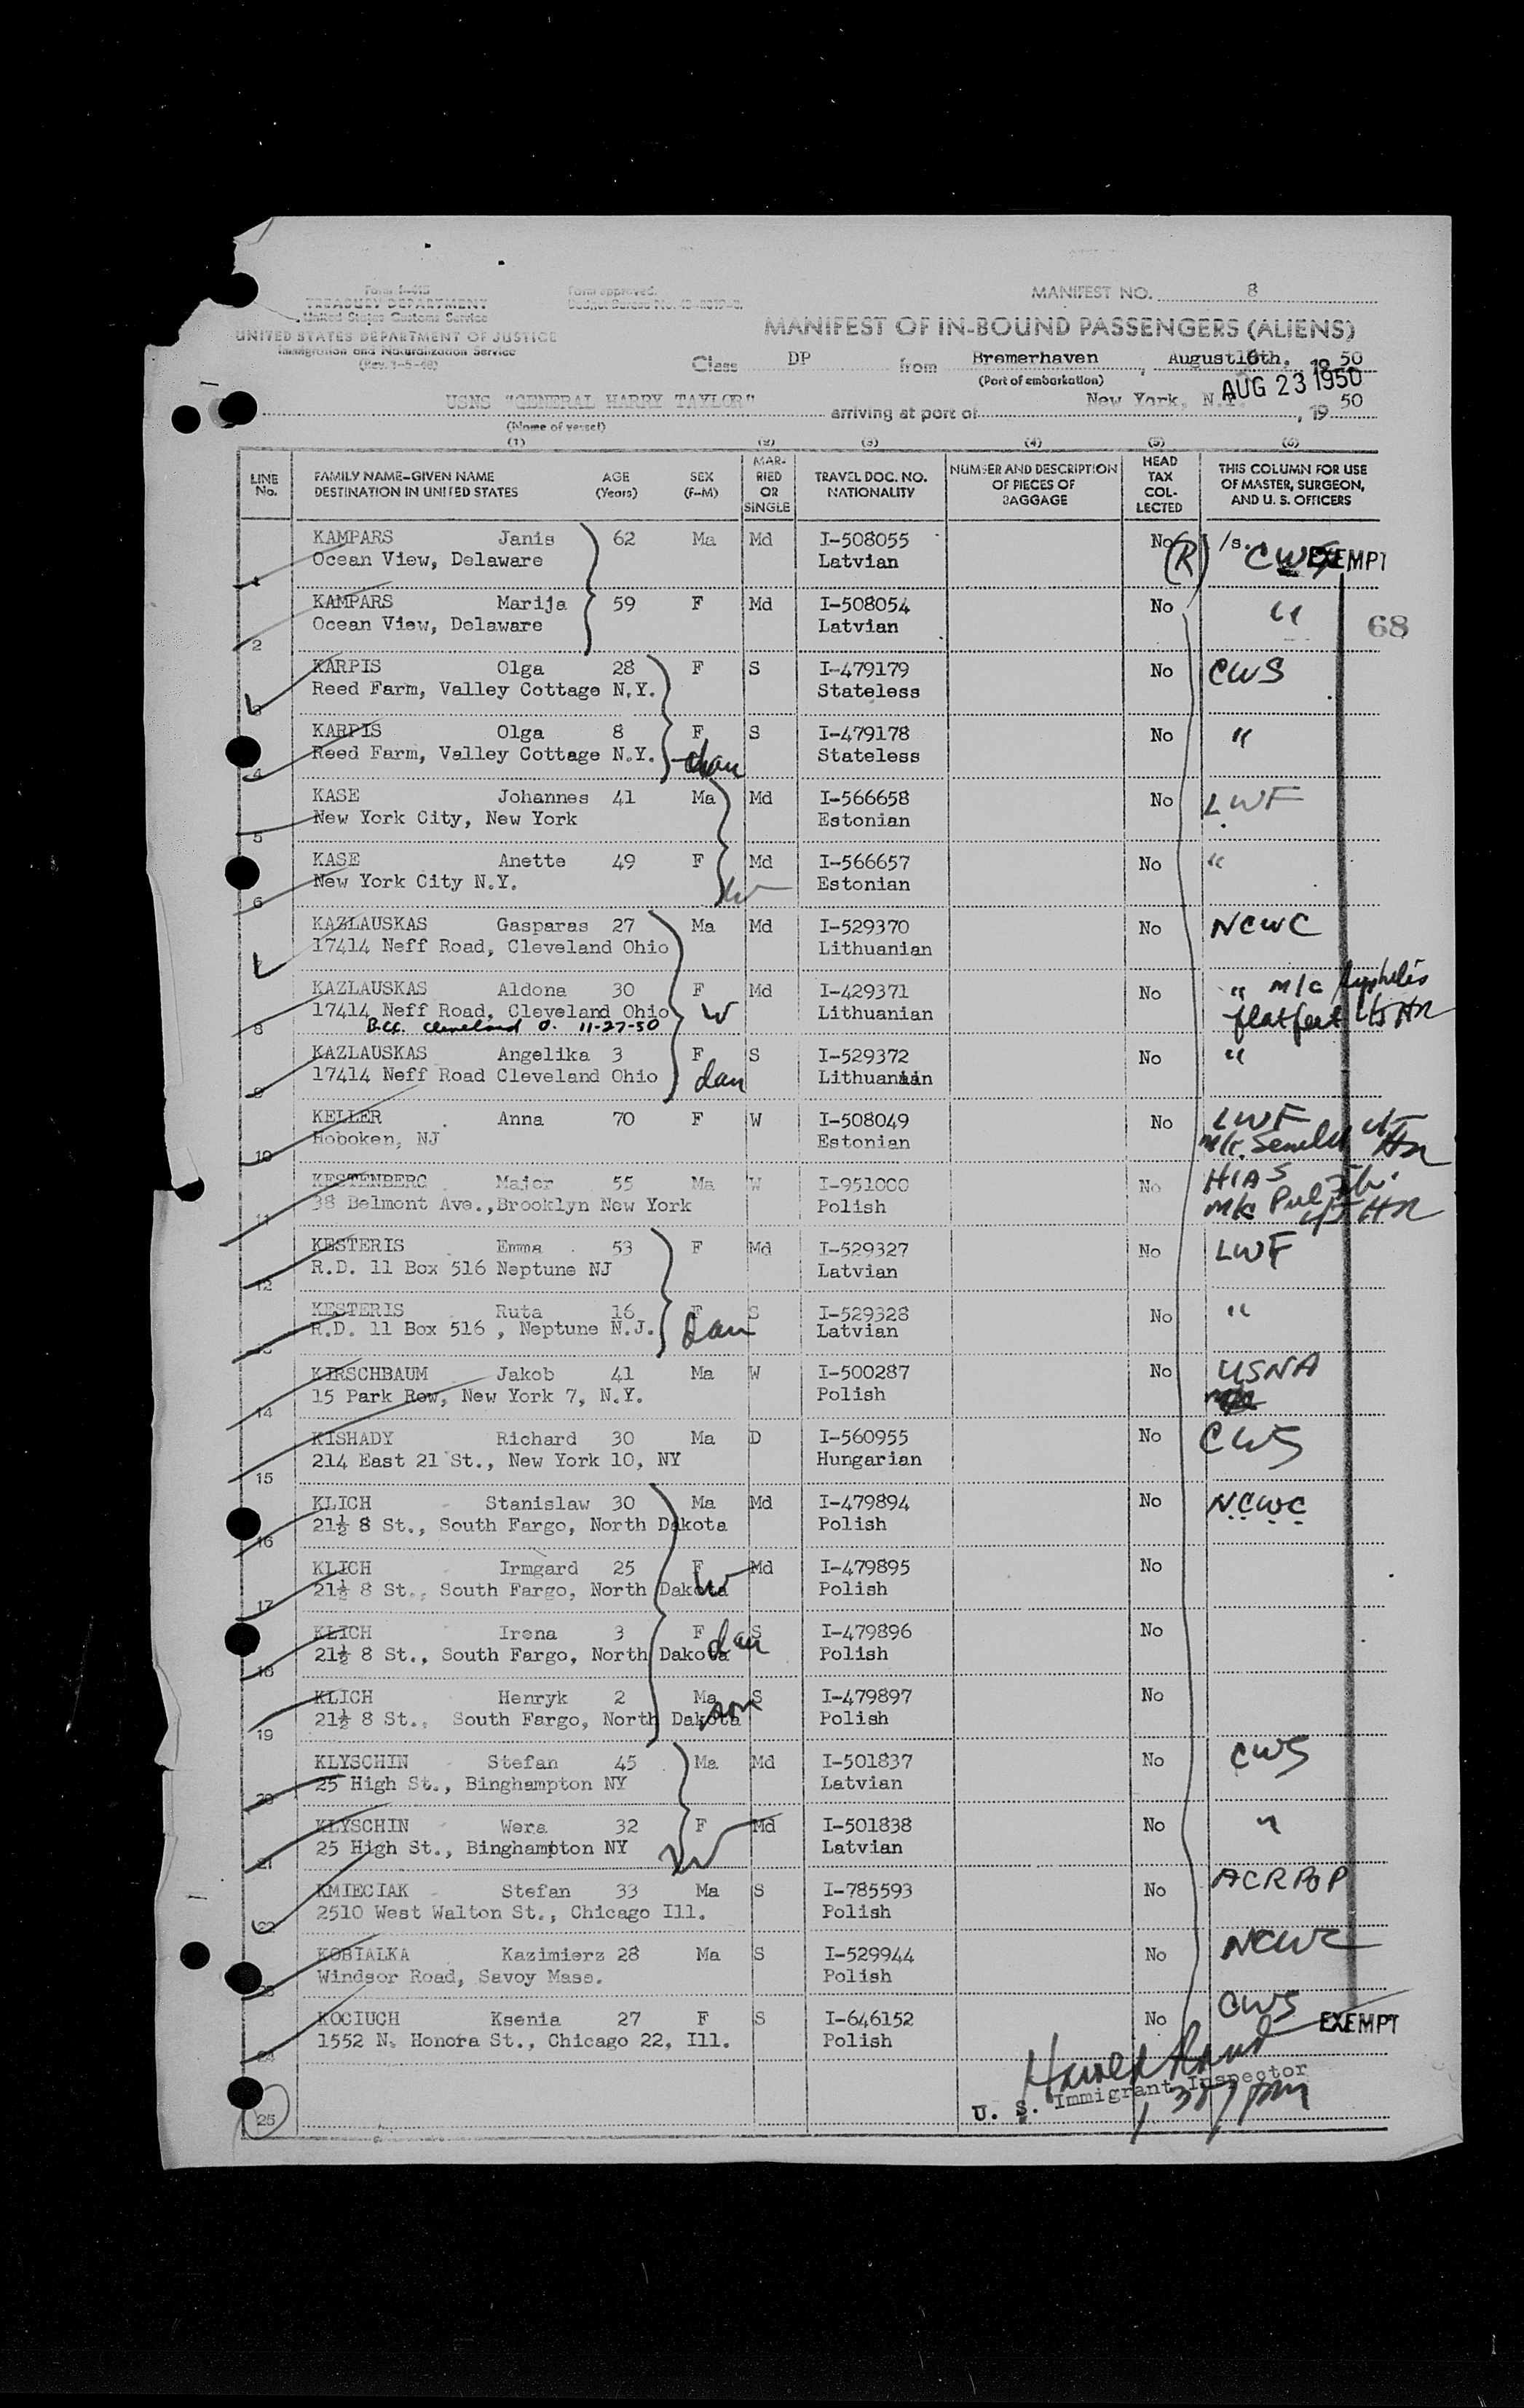 Form I-415
TREASURY DEPARTMENT
United States Customs Service
UNITED STATES DEPARTMENT OF JUSTICE
Immigration and Naturalization Service
Form approved.
MANIFEST NO. 8
MANIFEST OF IN-BOUND PASSENGERS (ALIENS)
Class DP from Bremerhaven , August 16th, 19 50
(Port of embarkation)
AUG 23 1950
USNS "GENERAL HARRY TAYLOR" arriving at port of New York, N.Y. , 19 50
(Name of vessel)
(1) (2) (3) (4) (5) (6)
LINE No. FAMILY NAME–GIVEN NAME DESTINATION IN UNITED STATES AGE (Years) SEX (F–M) MARRIED OR SINGLE TRAVEL DOC. NO. NATIONALITY NUMBER AND DESCRIPTION OF PIECES OF BAGGAGE HEAD TAX COLLECTED THIS COLUMN FOR USE OF MASTER, SURGEON, AND U. S. OFFICERS
KAMPARS Janis 62 Ma Md I-508055 No (R) /s. CWS EXEMPT
1 Ocean View, Delaware Latvian
KAMPARS Marija 59 F Md I-508054 No "
2 Ocean View, Delaware Latvian 68
KARPIS Olga 28 F S I-479179 No CWS
3 Reed Farm, Valley Cottage N.Y. Stateless
KARPIS Olga 8 F S I-479178 No "
4 Reed Farm, Valley Cottage N.Y. dau Stateless
KASE Johannes 41 Ma Md I-566658 No LWF
5 New York City, New York Estonian
KASE Anette 49 F Md I-566657 No "
6 New York City N.Y. W Estonian
KAZLAUSKAS Gasparas 27 Ma Md I-529370 No NCWC
7 17414 Neff Road, Cleveland Ohio Lithuanian
KAZLAUSKAS Aldona 30 F Md I-429371 No " m/c syphilis
8 17414 Neff Road, Cleveland Ohio W Lithuanian flatfeet HR
Cleveland O. 11-27-50
KAZLAUSKAS Angelika 3 F S I-529372 No "
9 17414 Neff Road Cleveland Ohio dau Lithuanian
KELLER Anna 70 F W I-508049 No LWF
10 Hoboken, NJ Estonian m/c. HR
KESTENBERG Major 55 Ma W I-951000 No HIAS
11 38 Belmont Ave.,Brooklyn New York Polish m/c HR
KESTERIS Emma 53 F Md I-529327 No LWF
12 R.D. 11 Box 516 Neptune NJ Latvian
KESTERIS Ruta 16 F S I-529328 No "
13 R.D. 11 Box 516 , Neptune N.J. dau Latvian
KIRSCHBAUM Jakob 41 Ma W I-500287 No USNA
14 15 Park Row, New York 7, N.Y. Polish
KISHADY Richard 30 Ma D I-560955 No CWS
15 214 East 21 St., New York 10, NY Hungarian
KLICH Stanislaw 30 Ma Md I-479894 No NCWC
16 21½ 8 St., South Fargo, North Dakota Polish
KLICH Irmgard 25 F Md I-479895 No
17 21½ 8 St., South Fargo, North Dakota W Polish
KLICH Irena 3 F S I-479896 No
18 21½ 8 St., South Fargo, North Dakota dau Polish
KLICH Henryk 2 Ma S I-479897 No
19 21½ 8 St., South Fargo, North Dakota son Polish
KLYSCHIN Stefan 45 Ma Md I-501837 No CWS
20 25 High St., Binghampton NY Latvian
KLYSCHIN Wera 32 F Md I-501838 No "
21 25 High St., Binghampton NY W Latvian
KMIECIAK Stefan 33 Ma S I-785593 No ACRPOP
22 2510 West Walton St., Chicago Ill. Polish
KOBIALKA Kazimierz 28 Ma S I-529944 No NCWC
23 Windsor Road, Savoy Mass. Polish
KOCIUCH Ksenia 27 F S I-646152 No CWS EXEMPT
24 1552 N. Honora St., Chicago 22, Ill. Polish
U. S. Immigrant Inspector
25